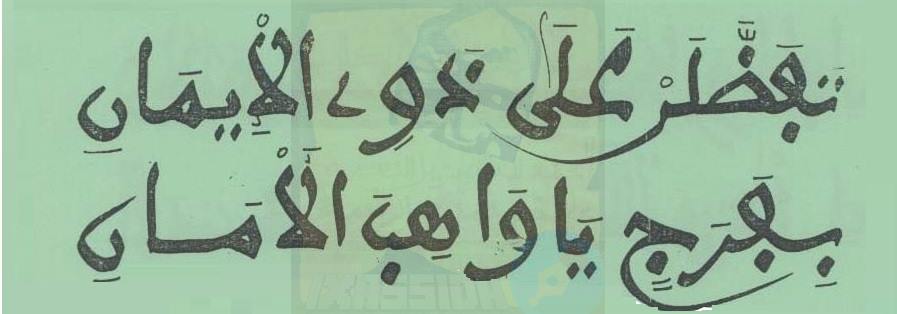 تَفَضَّلَنْ عَلَى ذَوِي الْإِيمَانِ
بِفَرَجٍ يَا وَاهِبَ الْأَمَانِ